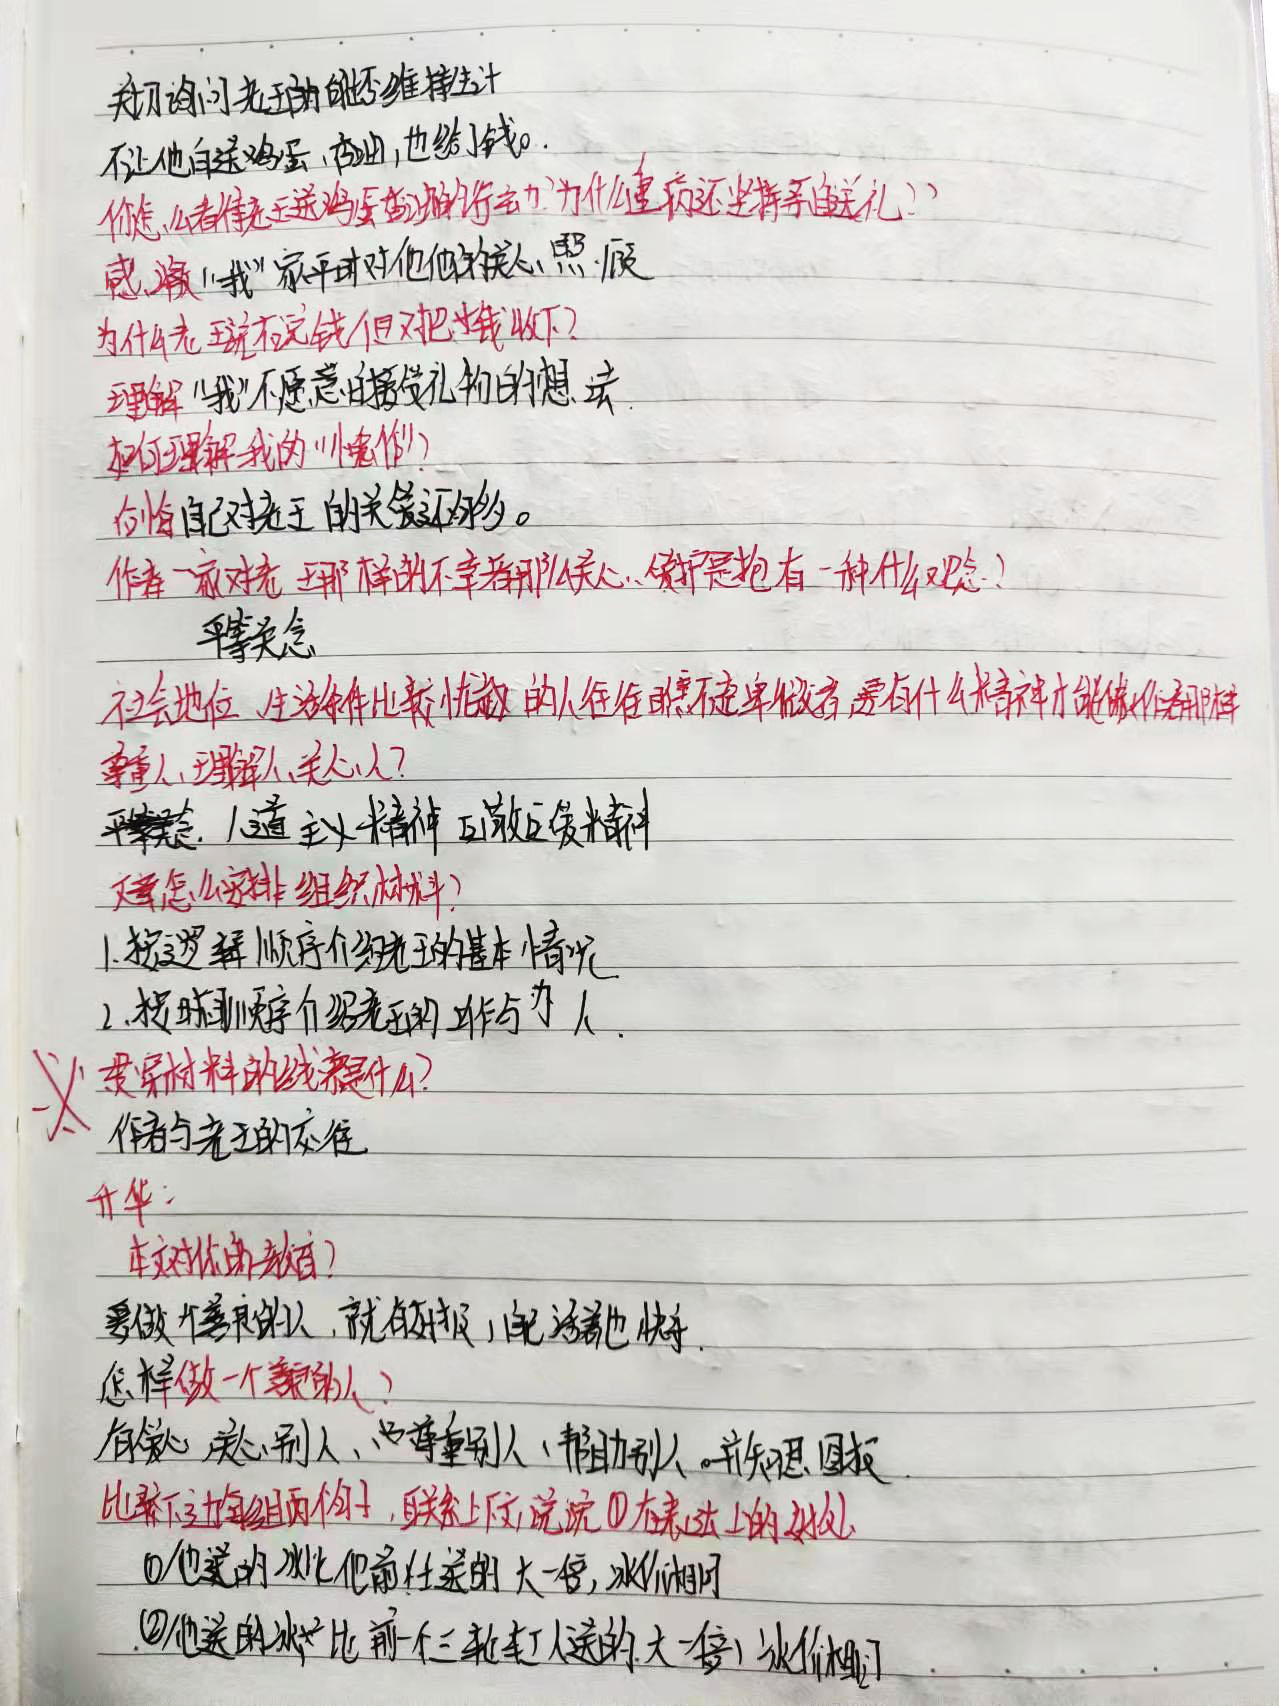 关切询问老王的能否维持生计
不让他白送鸡蛋,香油,也给了钱。
你怎么看待老王送鸡蛋香油的行动?为什么重病还坚持亲自送礼??
感激“我”家平时对他他的关心、照顾
为什么老王说不完钱但又把钱收下?
理解“我”不愿意白接受礼物的想法.
如何理解我的“愧怍”?
后悔自己对老王的关爱还不够多。
作者一家对老王那样的不幸者那么关心、爱护是抱有一种什么观念?
平等关念
社会地位、生活条件比较优越的人往往瞧不起卑微者,要有什么精神才能像作者那样
尊重人、理解人、关心人?
人道主义精神 互敬互爱精神
文章怎么安排组织材料?
1.按逻辑顺序介绍老王的基本情况
2.按时间顺序介绍老王的工作与为人.
贯穿材料的线索是什么?
作者与老王的交往
升华:
本文对你的教育?
要做个善良的人,就有好报,自己活着也快乐.
怎样做一个善良的人?
有爱心,关心别人、尊重别人、帮助别人。并知恩图报.
比较下边每组两个句子,联系上下文,说说①在表达上的好处
①他送的冰比他前任送的大一倍,冰价相同
②他送的冰比前一个三轮车工人送的大一倍,冰价相同